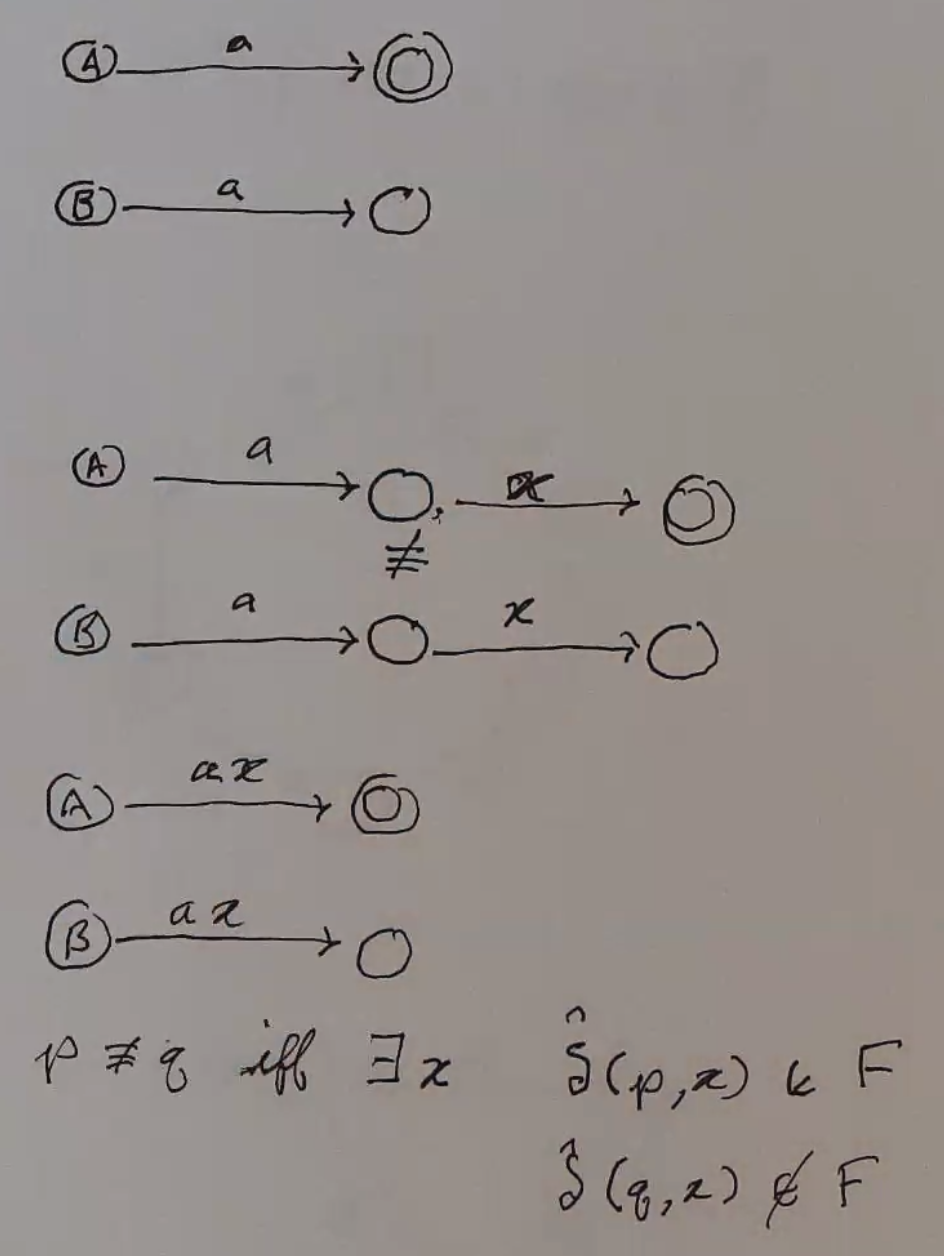 A a
B a
A a x
≢
B a x
A ax
B ax
p ≢ q iff ∃ x δ̂(p,x) ∈ F
δ̂(q,x) ∉ F